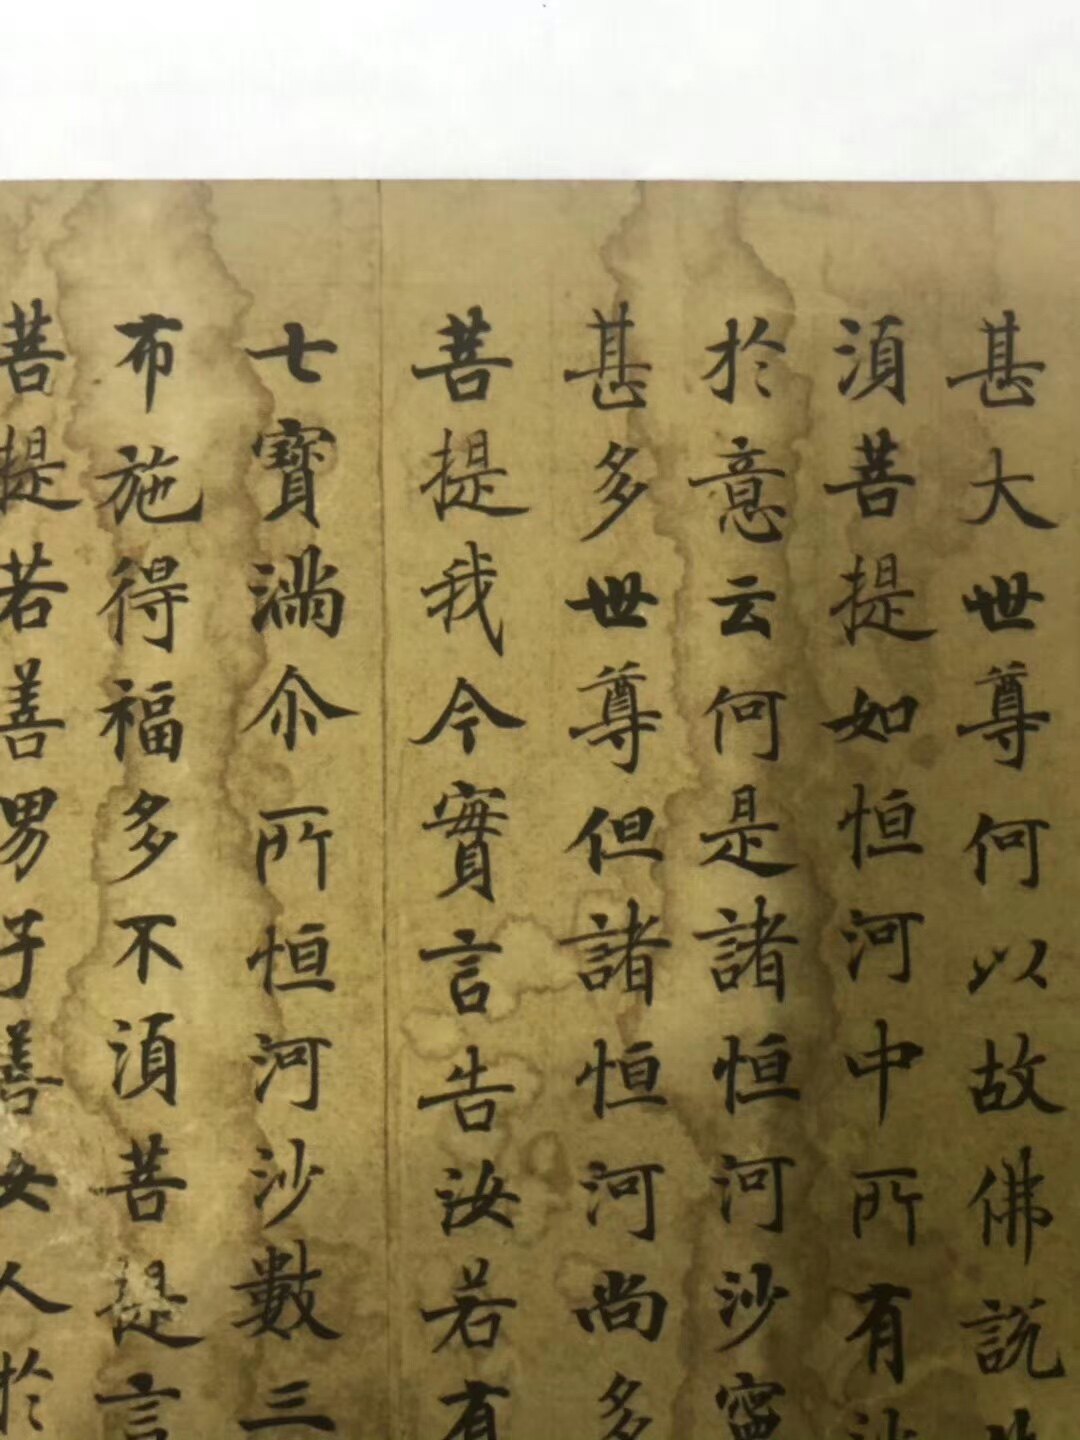 甚大世尊何以故佛説
湏菩提如恒河中所有沙
於意云何是諸恒河沙寧
甚多世尊但諸恒河尚多
菩提我今實言告汝若有
七寳滿尒所恒河沙數三
布施得福多不湏菩提言
菩提若善男子善女人於